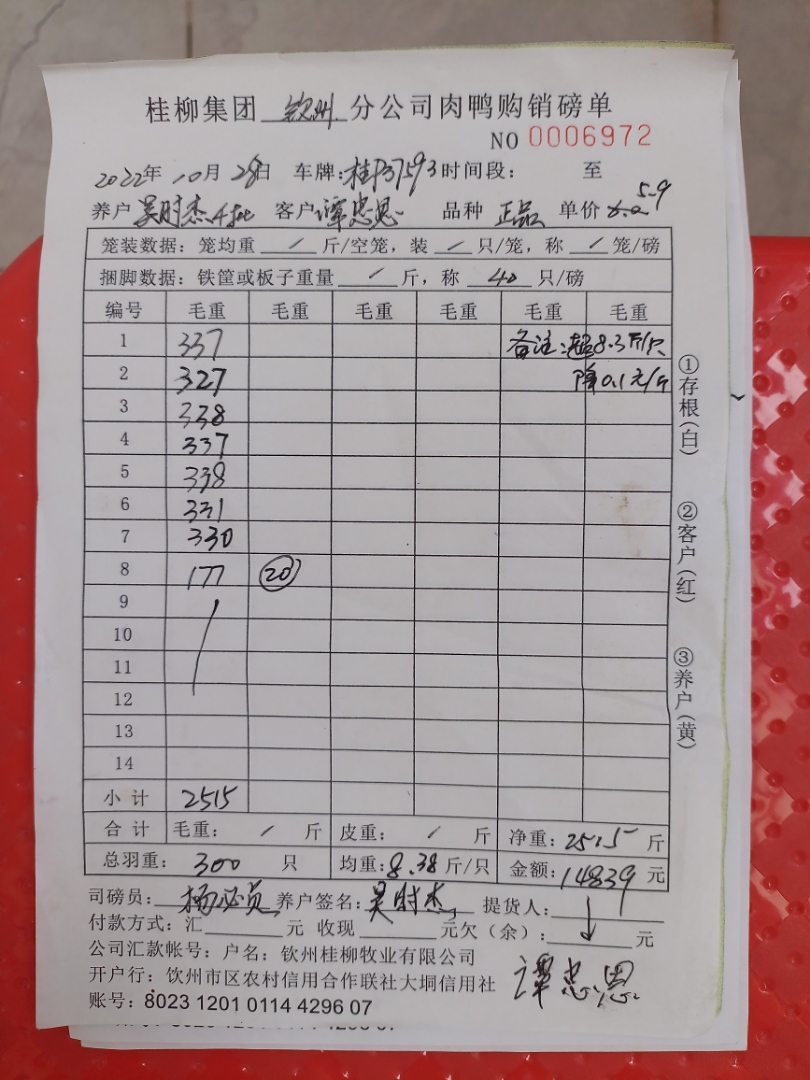 桂柳集团 钦州 分公司肉鸭购销磅单
NO 0006972
2022年 10月 28日 车牌:桂P37593 时间段: 至
养户 吴时杰4批 客户 谭忠恩 品种 正品 单价 5.9
笼装数据: 笼均重 / 斤/空笼, 装 / 只/笼, 称 / 笼/磅
捆脚数据: 铁筐或板子重量 / 斤, 称 40 只/磅
编号 毛重 毛重 毛重 毛重 毛重 毛重
1 337 备注:超8.3斤/只
2 327 降0.1元/斤
3 338
4 337
5 338
6 331
7 330
8 177 20
9
10
11
12
13
14
小计 2515
合计 毛重: / 斤 皮重: / 斤 净重: 2515 斤
总羽重: 300 只 均重: 8.38 斤/只 金额: 14839 元
司磅员: 杨必员 养户签名: 吴时杰 提货人:
付款方式: 汇 元 收现 元欠(余): 元
公司汇款帐号: 户名: 钦州桂柳牧业有限公司
谭忠恩
开户行: 钦州市区农村信用合作联社大垌信用社
账号: 8023 1201 0114 4296 07
①存根(白)
②客户(红)
③养户(黄)